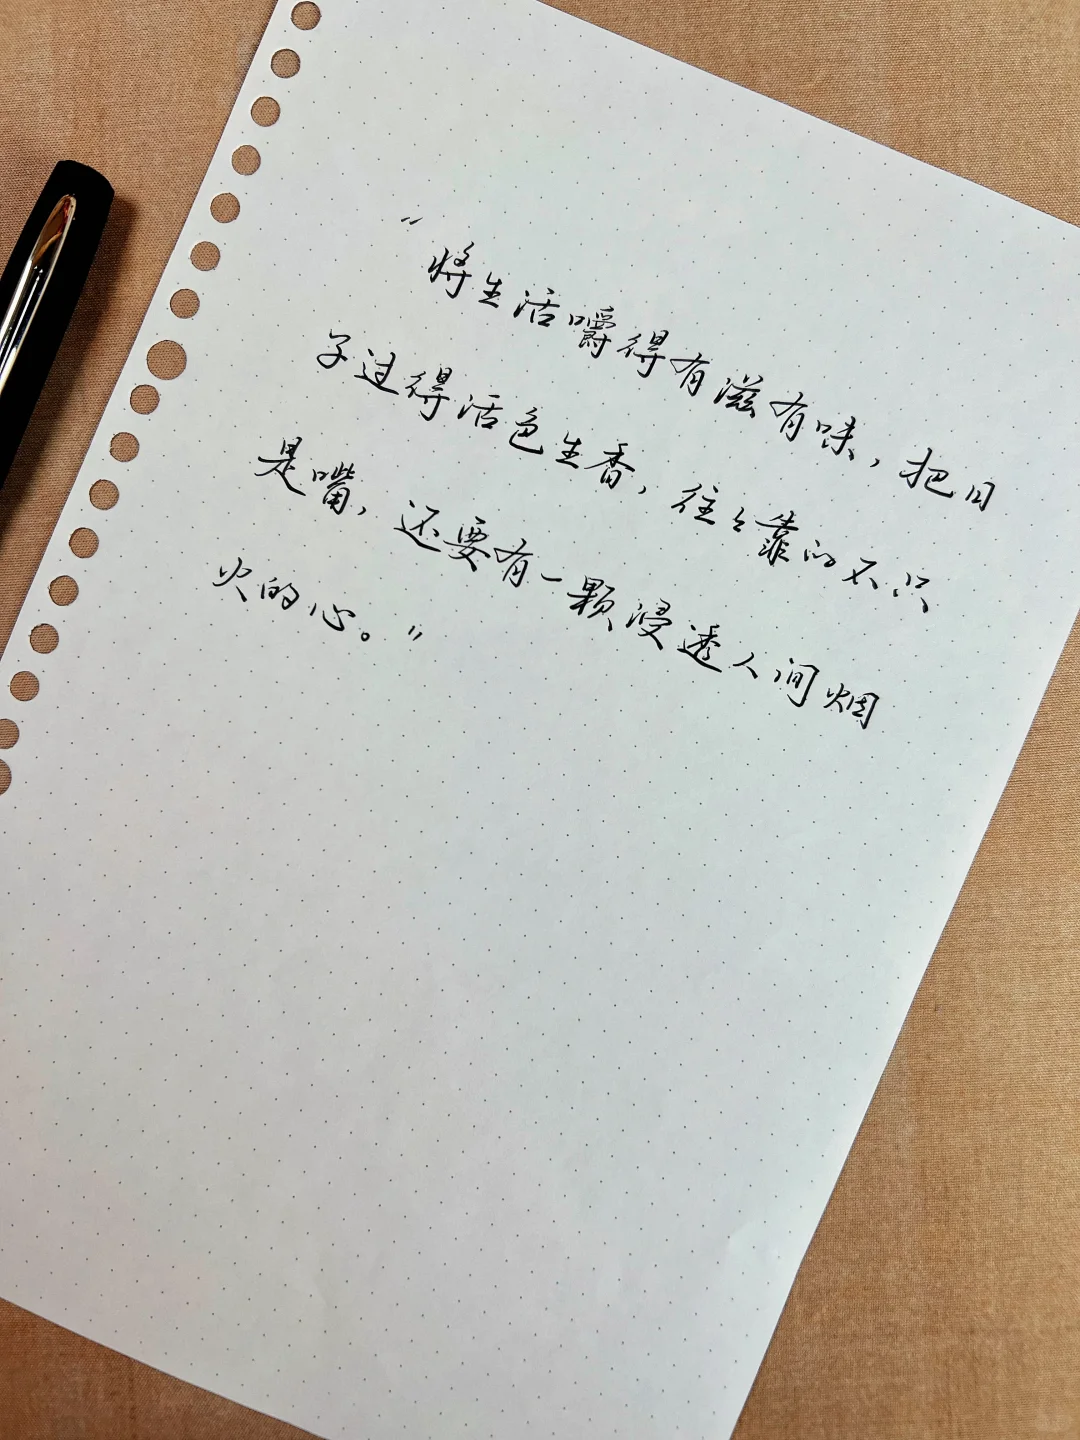 “将生活嚼得有滋有味，把日
子过得活色生香，往々靠的不只
是嘴，还要有一颗浸透人间烟
火的心。”